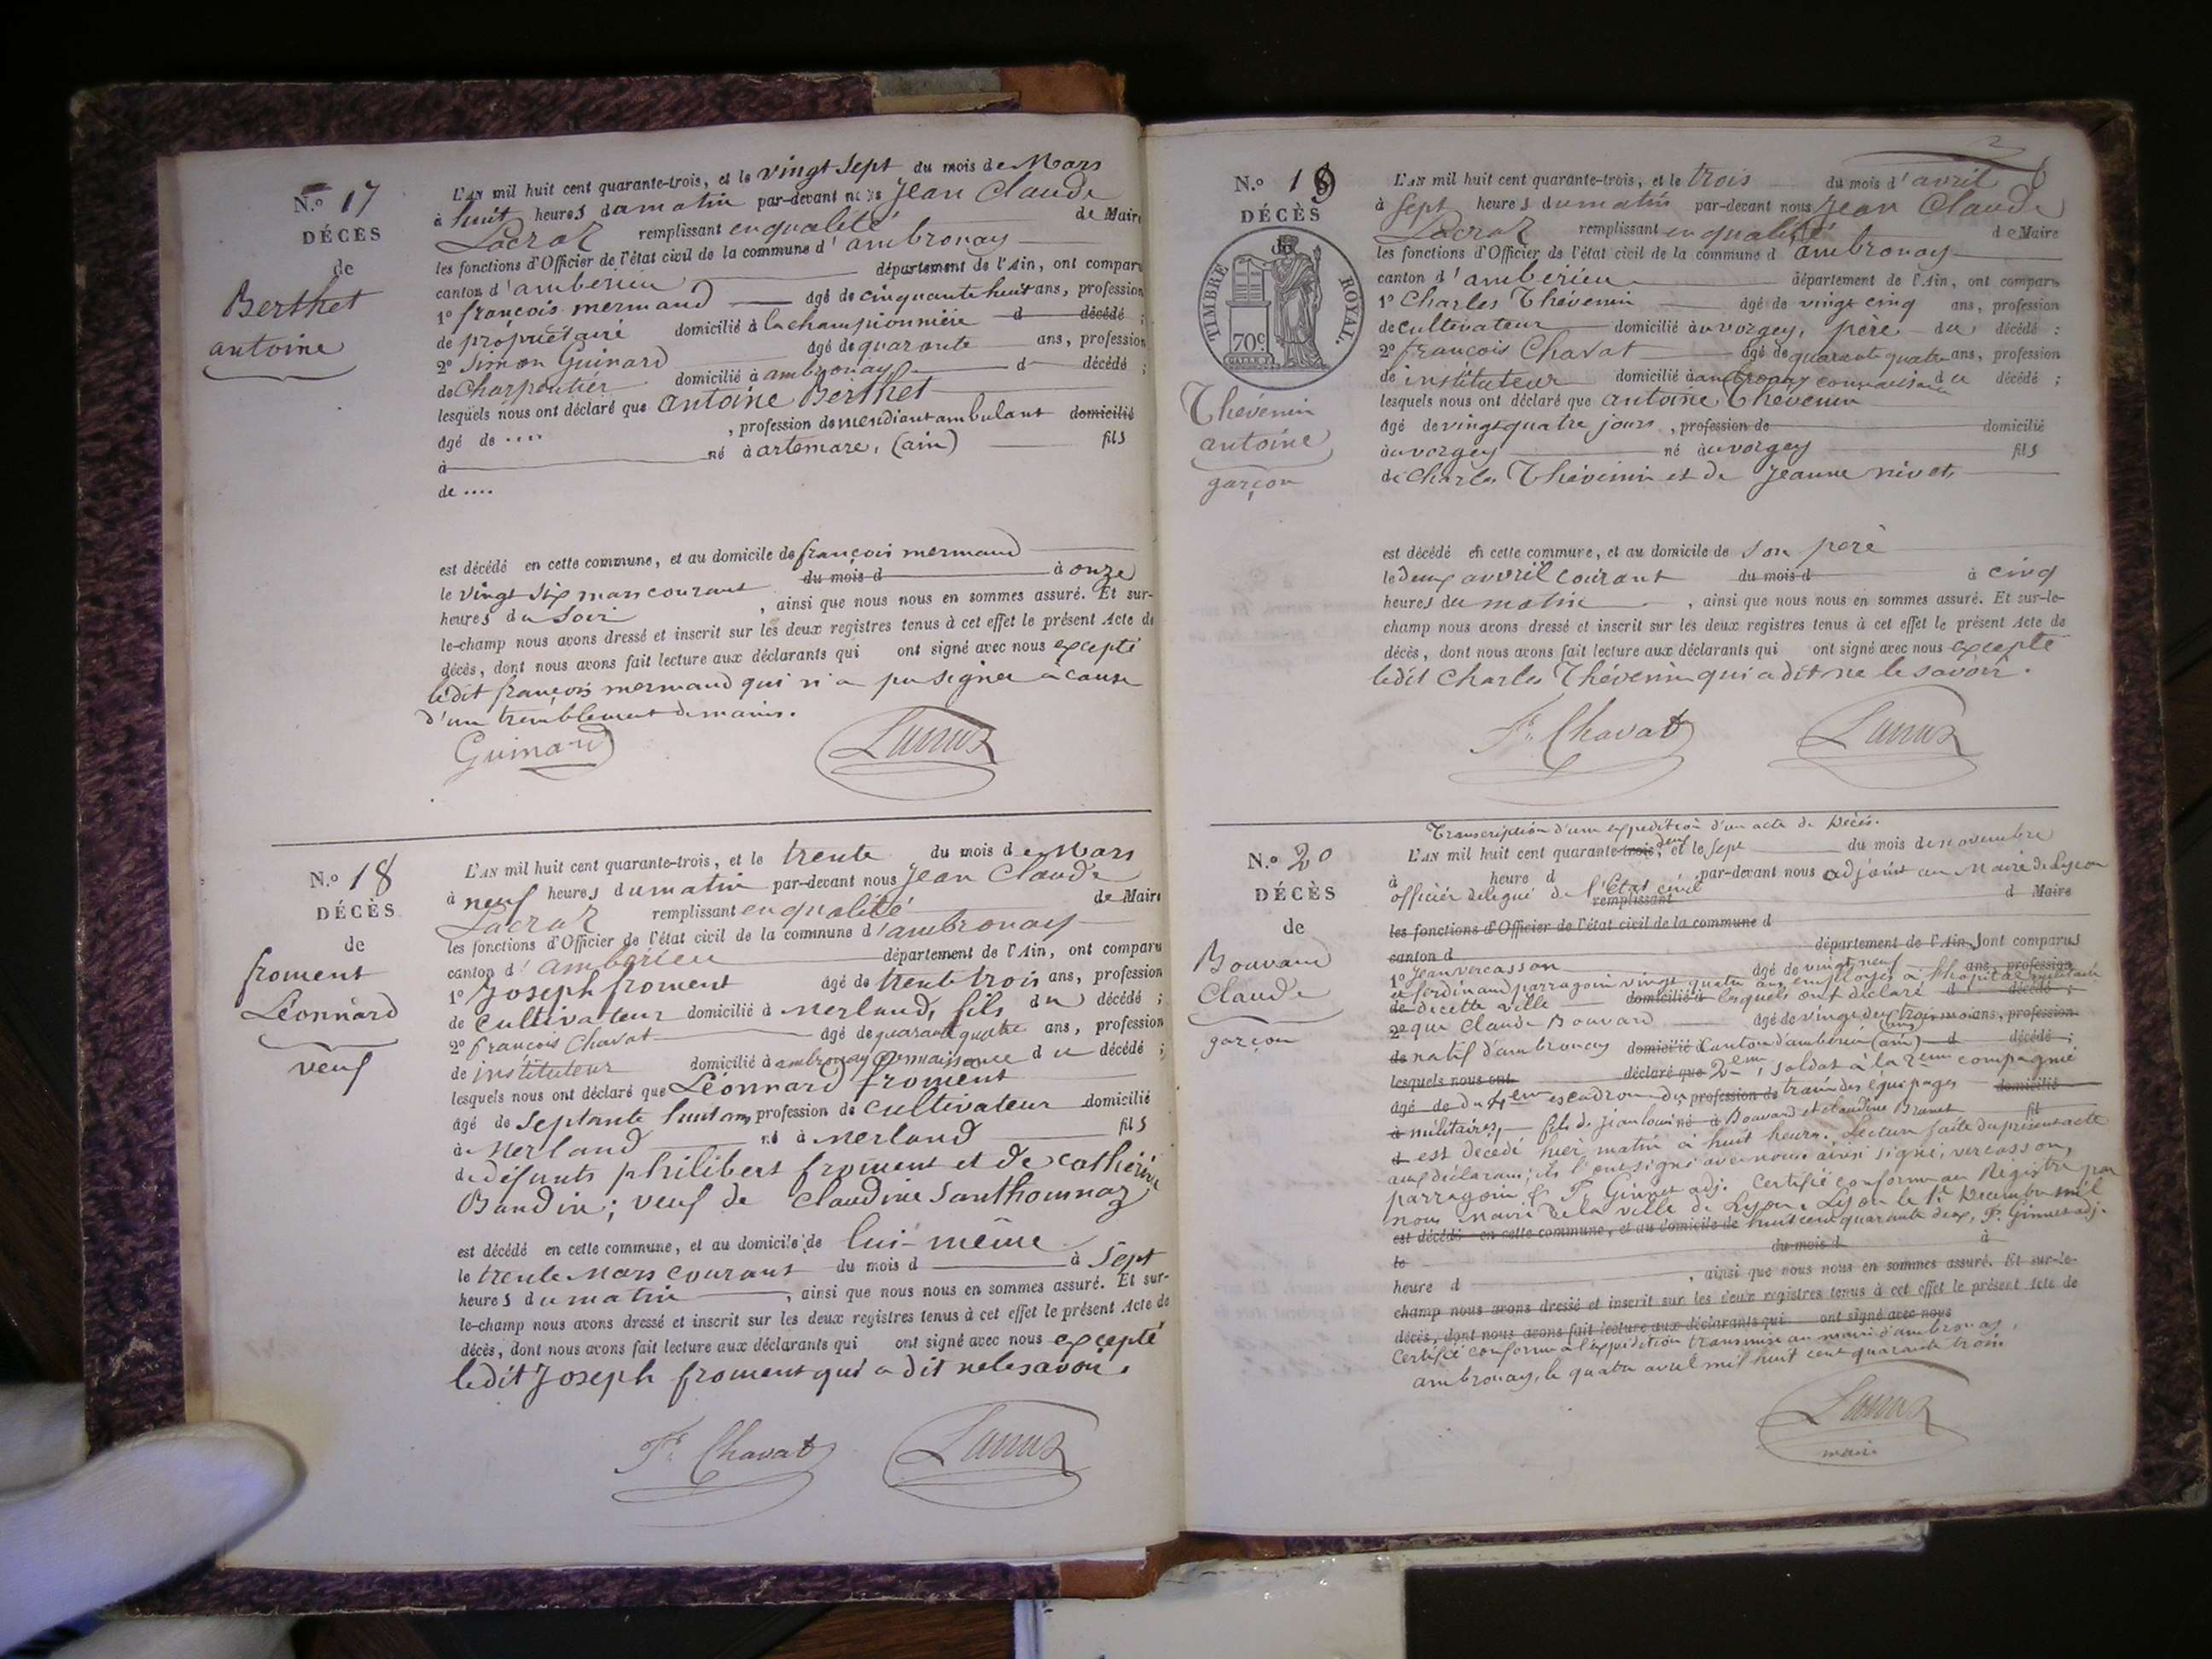 N.º 17
DÉCÈS
de
Berthet
antoine
L'AN mil huit cent quarante-trois, et le vingt sept du mois de Mars
à huit heures du matin par-devant nous Jean Claude
Lacroz remplissant en qualité de Maire
les fonctions d'Officier de l'état civil de la commune d'ambronay
canton d'amberieu département de l'Ain, ont comparu
1º françois mermand âgé de cinquante huit ans, profession
de propriétaire domicilié à la championnière d décédé ;
2º Simon Guinard âgé de quarante ans, profession
de Charpentier domicilié à ambronay d décédé ;
lesquels nous ont déclaré que antoine Berthet
âgé de .... , profession de mendiant ambulant domicilié
à né à artemare, (ain) fils
de ....
est décédé en cette commune, et au domicile de françois mermand
le vingt six mars courant du mois d à onze
heures du Soir , ainsi que nous nous en sommes assuré. Et sur-
le-champ nous avons dressé et inscrit sur les deux registres tenus à cet effet le présent Acte de
décès, dont nous avons fait lecture aux déclarants qui ont signé avec nous excepté
ledit françois mermand qui n'a pu signer à cause
d'un tremblement de mains.
Guinard
Lacroz
N.º 18
DÉCÈS
de
froment
Léonnard
veuf
L'AN mil huit cent quarante-trois, et le trente du mois de Mars
à neuf heures du matin par-devant nous Jean Claude
Lacroz remplissant en qualité de Maire
les fonctions d'Officier de l'état civil de la commune d'ambronay
canton d'amberieu département de l'Ain, ont comparu
1º Joseph froment âgé de trente trois ans, profession
de cultivateur domicilié à merland, fils du décédé ;
2º françois Chavat âgé de quarante quatre ans, profession
de instituteur domicilié à ambronay connaissance du décédé ;
lesquels nous ont déclaré que Léonnard froment
âgé de septante huit ans, profession de cultivateur domicilié
à Merland né à Merland fils
de défunts philibert froment et de cathérine
Baudin ; veuf de Claudine Santhonnaz
est décédé en cette commune, et au domicile de lui-même
le trente Mars courant du mois d à Sept
heures du matin , ainsi que nous nous en sommes assuré. Et sur-
le-champ nous avons dressé et inscrit sur les deux registres tenus à cet effet le présent Acte de
décès, dont nous avons fait lecture aux déclarants qui ont signé avec nous excepté
ledit Joseph froment qui a dit ne le savoir.
F. Chavat
Lacroz
N.º 19
DÉCÈS
TIMBRE ROYAL.
70c
Thévenin
antoine
garçon
L'AN mil huit cent quarante-trois, et le trois du mois d'avril
à sept heures du matin par-devant nous Jean Claude
Lacroz remplissant en qualité de Maire
les fonctions d'Officier de l'état civil de la commune d'ambronay
canton d'amberieu département de l'Ain, ont comparu
1º Charles Thevenin âgé de vingt cinq ans, profession
de cultivateur domicilié au vorgey, père du décédé ;
2º françois Chavat âgé de quarante quatre ans, profession
de instituteur domicilié à ambronay connaissance du décédé ;
lesquels nous ont déclaré que antoine Thevenin
âgé de vingt quatre jours , profession de domicilié
au vorgey né au vorgey fils
de Charles Thévenin et de Jeanne nivet,
est décédé en cette commune, et au domicile de son père
le deux avril courant du mois d à cinq
heures du matin , ainsi que nous nous en sommes assuré. Et sur-le-
champ nous avons dressé et inscrit sur les deux registres tenus à cet effet le présent Acte de
décès, dont nous avons fait lecture aux déclarants qui ont signé avec nous excepté
ledit Charles Thévenin qui a dit ne le savoir.
F. Chavat
Lacroz
Transcription d'une expédition d'un acte de Décès.
N.º 20
DÉCÈS
de
Bouvard
Claude
garçon
L'AN mil huit cent quarante-trois, deux et le sept du mois de novembre
à heure d par-devant nous adjoint au Maire de Lyon
officier délégué de l'Etat civil remplissant d Maire
les fonctions d'Officier de l'état civil de la commune d
canton d département de l'Ain, sont comparus
1º Jean vercasson âgé de vingt neuf ans, profession
et ferdinand parragoin vingt quatre ans employés à l'hopital militaire
de de cette ville domicilié à lesquels ont déclaré d décédé ;
2º que Claude Bouvard âgé de vingt deux ans trois mois ans, profession
de natif d'ambronay domicilié Canton d'ambérieu (ain) d décédé ;
lesquels nous ont déclaré que 2eme, soldat à la 2eme compagnie
âgé de du 4eme escadron du profession de train des équipages domicilié
à militaires, fils de jean louis né à Bouvard et claudine Brunet fil
d est décédé hier matin à huit heures. Lecture faite du présent acte
aux déclarans, ils l'ont signé avec nous ainsi signé, vercasson,
parragoin & P. Ginnet adj. Certifié conforme au Registre par
nous Maire de la ville de Lyon, Lyon le 1er Decembre mil
est décédé en cette commune, et au domicile de huit cent quarante deux, P. Ginnet adj.
le du mois d à
heure d , ainsi que nous nous en sommes assuré. Et sur-le-
champ nous avons dressé et inscrit sur les deux registres tenus à cet effet le présent Acte de
décès, dont nous avons fait lecture aux déclarants qui ont signé avec nous
Certifié conforme à l'expédition transmise au maire d'ambronay,
ambronay, le quatre avril mil huit cent quarante trois
Lacroz
maire